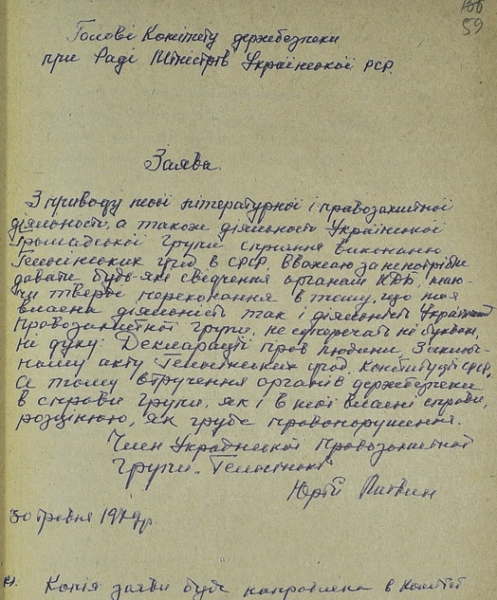 59
Голові Комітету держбезпеки
при Раді Міністрів Української РСР.
Заява.
З приводу моєї літературної і правозахистної
діяльності, а також діяльності Української
Громадської групи сприяння виконанню
Гельсінських угод в СРСР, вважаю за непотрібне
давати будь-які свідчення органам КДБ, маю-
чи тверде переконання в тому, що моя
власна діяльність так і діяльність Української
Правозахистної групи, не суперечать ні букві,
ні духу: Декларації прав людини, Заключ-
ному акту Гельсінських угод, Конституції СРСР,
А тому втручення органів держбезпеки
в справи групи, як і в мої власні справи,
розцінюю, як грубе правопорушення.
Член Української Правозахистної
групи „Гельсінкі"
Юрій Литвин
30 травня 1979р.
Копія заяви буде направлена в Комітет